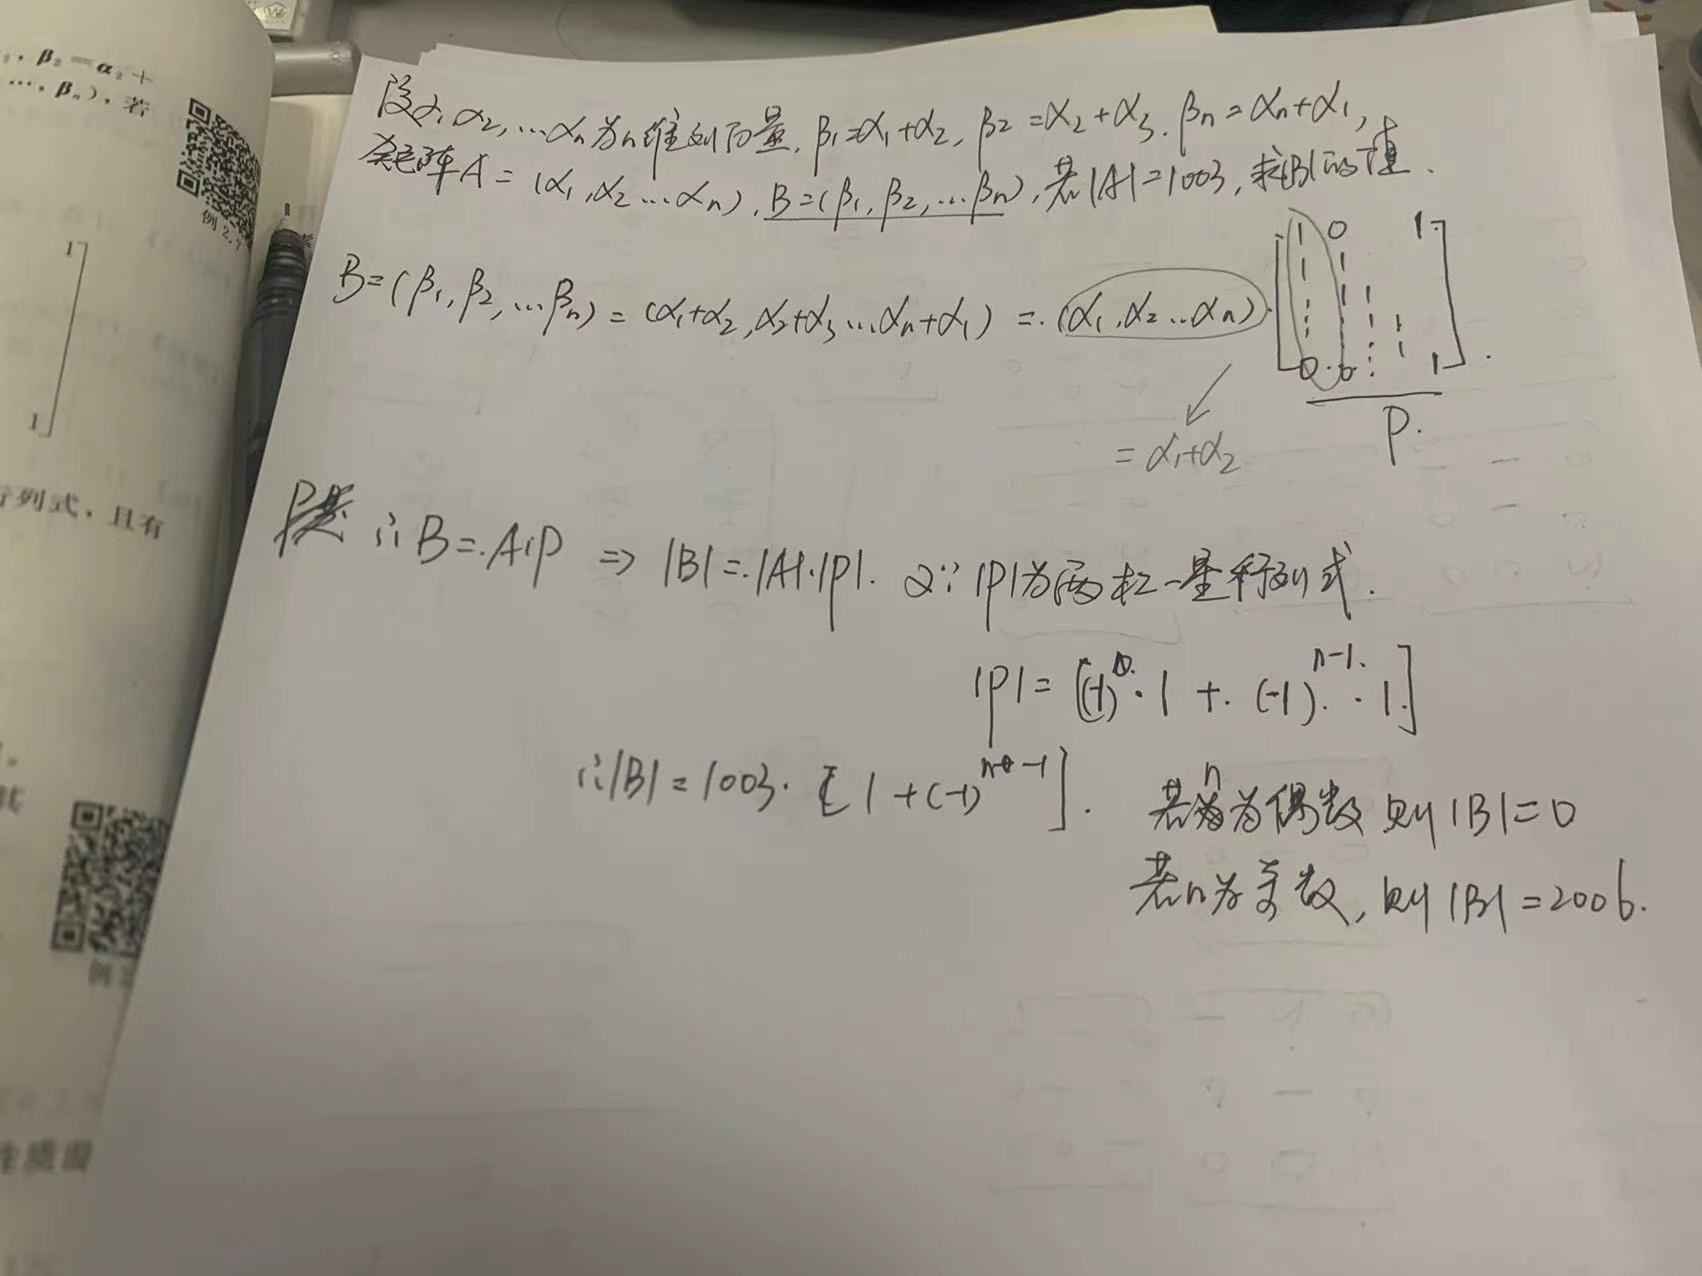 ₂, β₂=α₂+
…, βₙ), 若
例 2.7
1
1
行列式, 且有
性质
设α₁,α₂,…αₙ为n维列向量, β₁=α₁+α₂, β₂=α₂+α₃. βₙ=αₙ+α₁,
矩阵A=(α₁,α₂…αₙ), B=(β₁,β₂,…βₙ), 若|A|=1003, 求|B|的值.
B=(β₁,β₂,…βₙ)=(α₁+α₂,α₂+α₃…αₙ+α₁)=(α₁,α₂…αₙ)·
1 0 1
1 1
1 1
1 1
0 0 1
P.
=α₁+α₂
∴B=A·P ⇒ |B|=|A|·|P|. 又∵|P|为两杠一星行列式.
|P|=[(-1)⁰·1+(-1)ⁿ⁻¹·1]
∴|B|=1003·[1+(-1)ⁿ⁻¹]. 若n为偶数 则|B|=0
若n为奇数, 则|B|=2006.